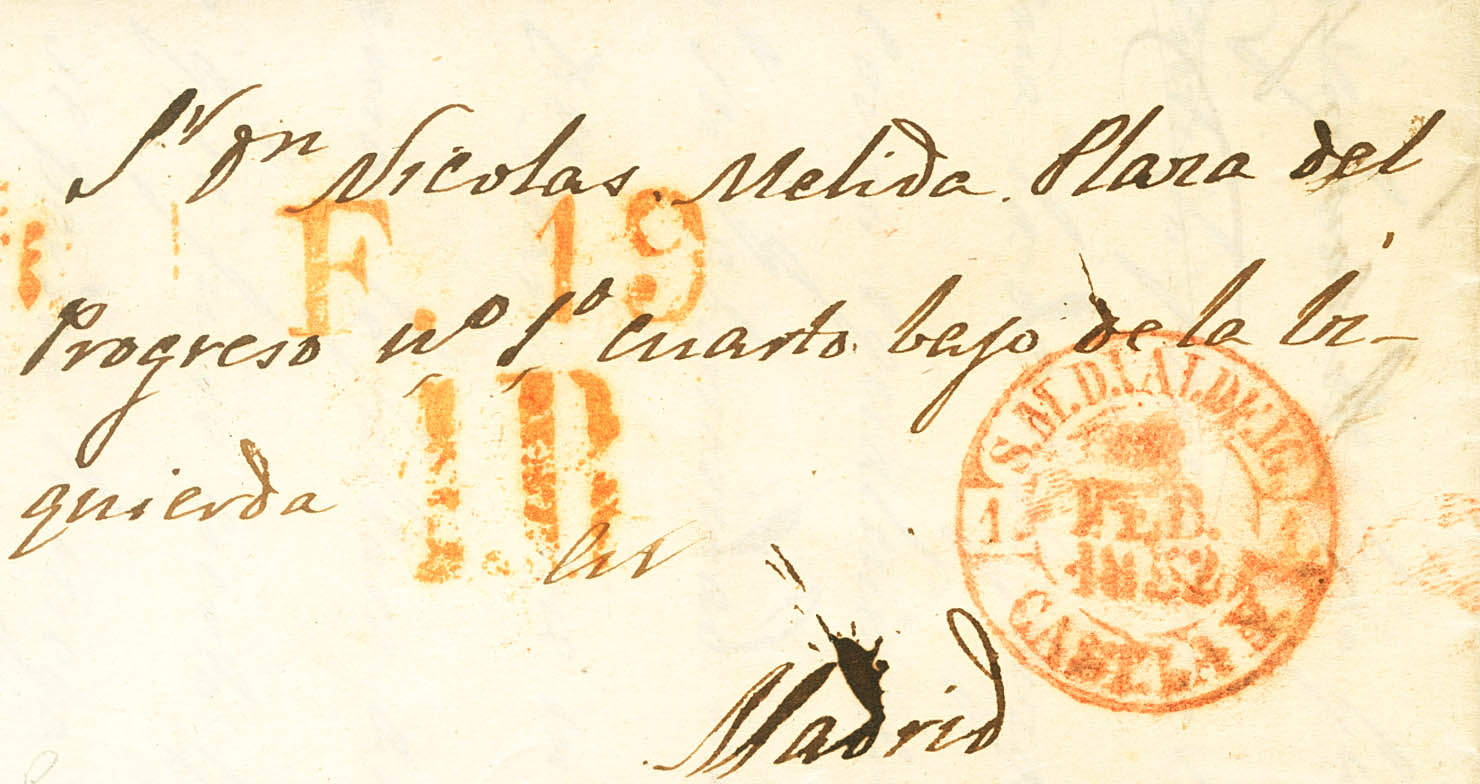 Sr Dn Nicolas Melida. Plaza del
F. 19
Progreso nº 1º cuarto bajo de la iz-
1R
quierda
en
Madrid
S.M.D.VALDEIG.
1 FEB. 1
1852
CAST.LA V.